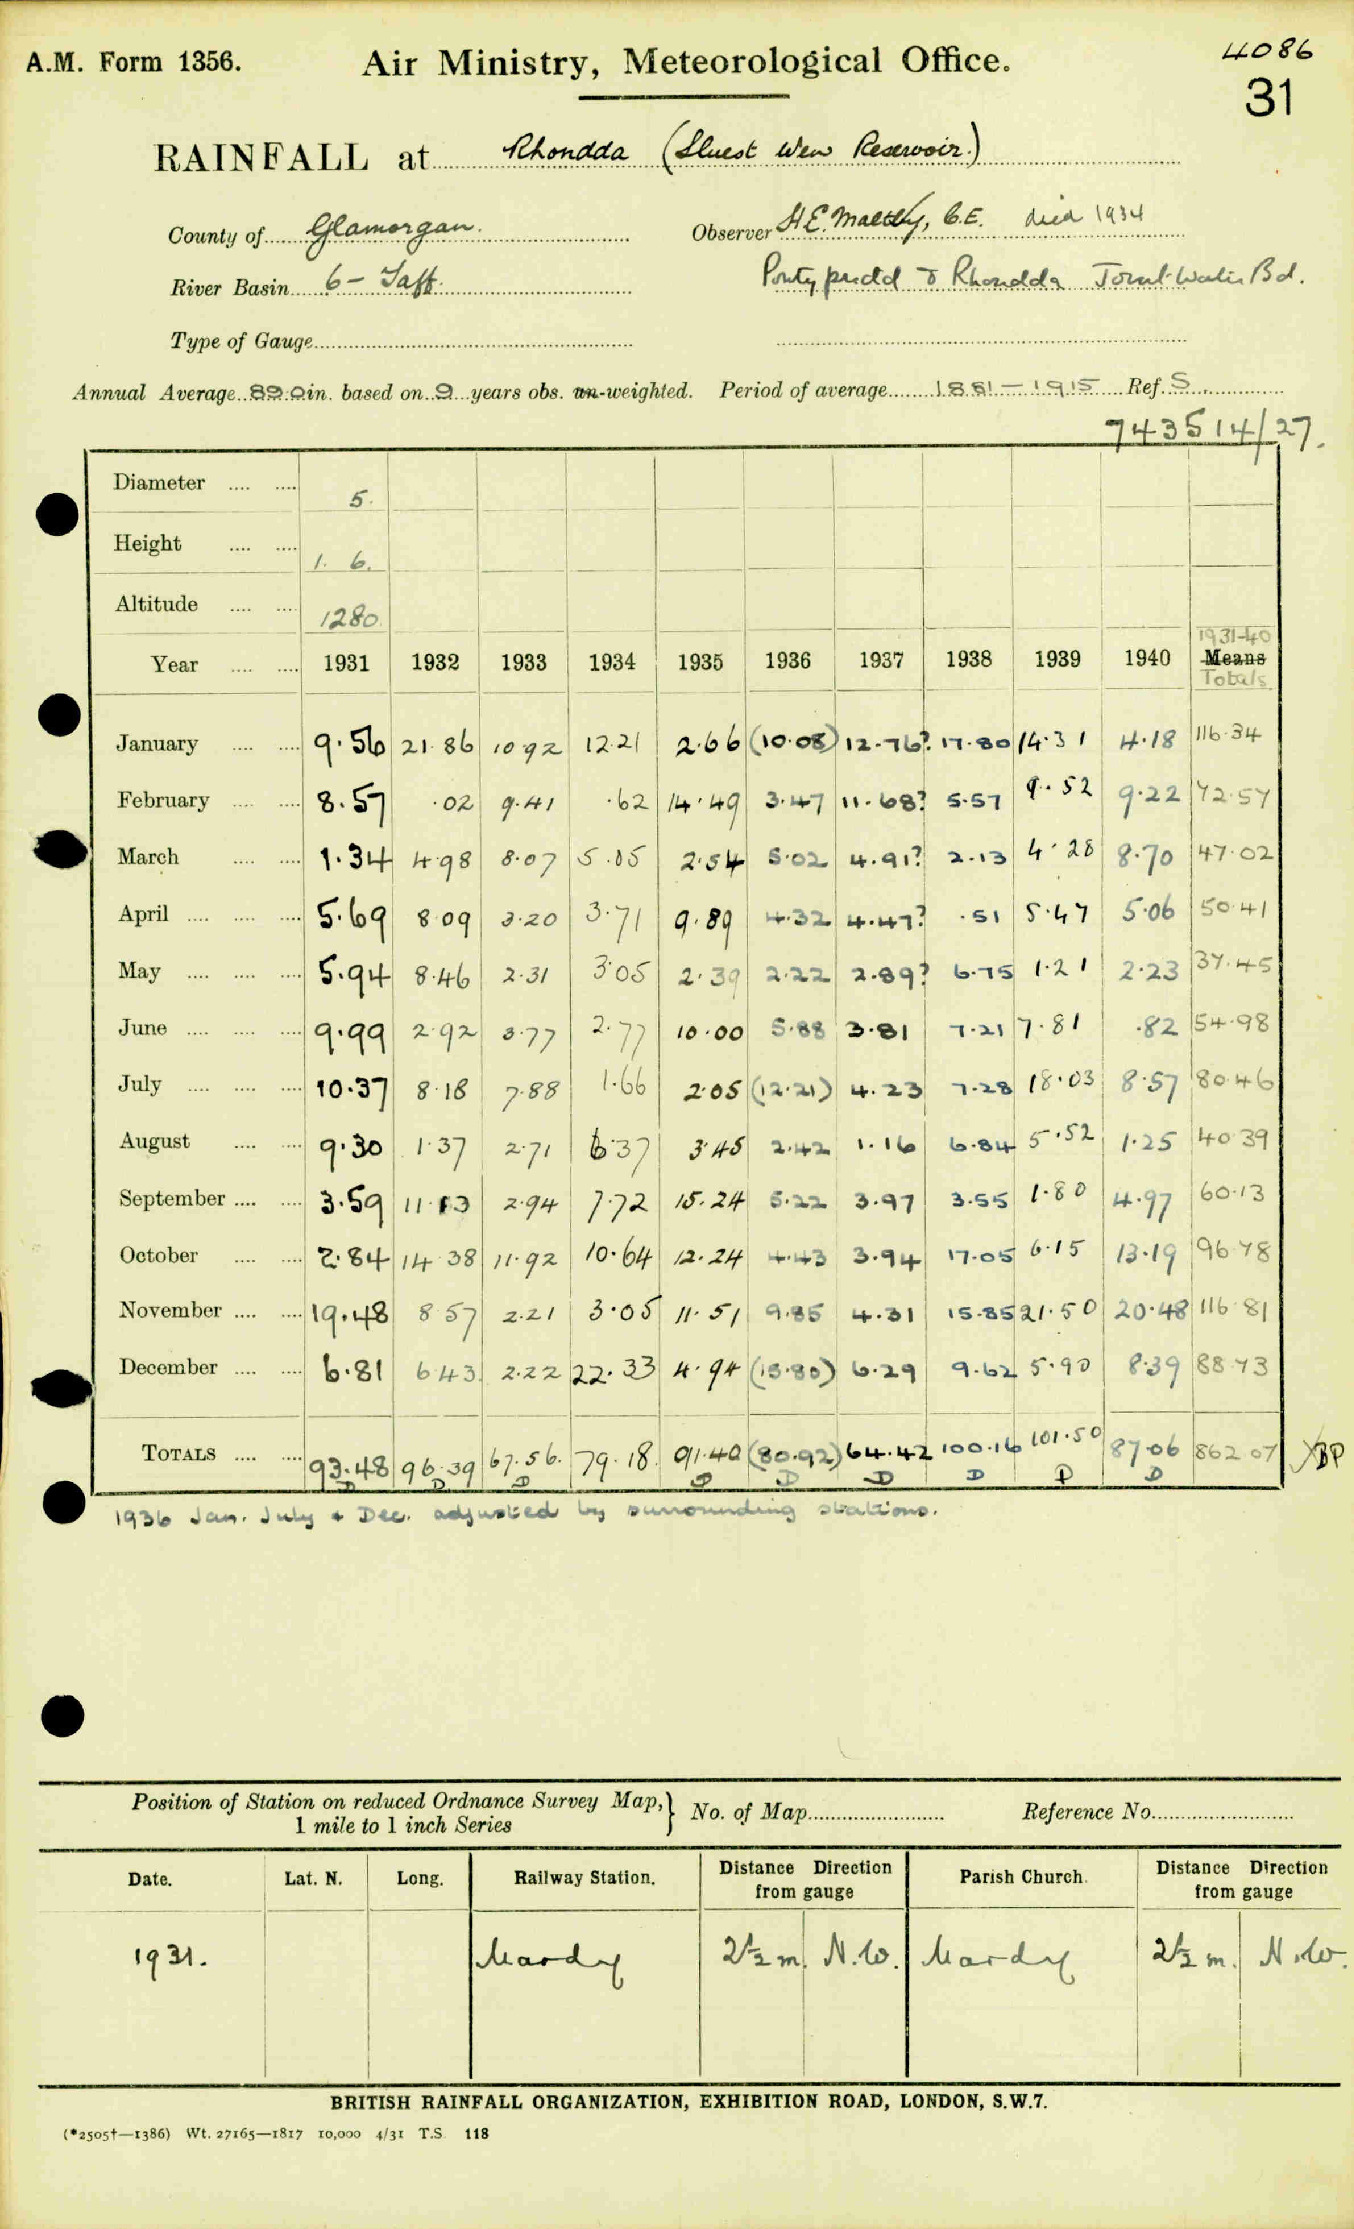 A.M. Form 1356. Air Ministry, Meteorological Office. 4086
31
RAINFALL at Rhondda (Lluest Wen Reservoir)
County of Glamorgan. Observer H.E. Maltby, C.E. died 1934
River Basin 6 - Taff. Pontypridd & Rhondda Joint Water Bd.
Type of Gauge
Annual Average 89.0 in. based on 9 years obs. un-weighted. Period of average 1881-1915 Ref. S
743514/27.
Diameter .... .... 5.
Height .... .... 1. 6.
Altitude .... .... 1280.
1931-40
Year .... .... 1931 1932 1933 1934 1935 1936 1937 1938 1939 1940 Means
Totals
January .... .... 9.56 21.86 10.92 12.21 2.66 (10.08) 12.76? 17.80 14.31 4.18 116.34
February .... .... 8.57 .02 9.41 .62 14.49 3.47 11.68? 5.57 9.52 9.22 72.57
March .... .... 1.34 4.98 8.07 5.05 2.54 5.02 4.91? 2.13 4.28 8.70 47.02
April .... .... .... 5.69 8.09 3.20 3.71 9.89 4.32 4.47? .51 5.47 5.06 50.41
May .... .... .... 5.94 8.46 2.31 3.05 2.39 2.22 2.89? 6.75 1.21 2.23 37.45
June .... .... .... 9.99 2.92 3.77 2.77 10.00 5.88 3.81 7.21 7.81 .82 54.98
July .... .... .... 10.37 8.18 7.88 1.66 2.05 (12.21) 4.23 7.28 18.03 8.57 80.46
August .... .... 9.30 1.37 2.71 6.37 3.45 2.42 1.16 6.84 5.52 1.25 40.39
September .... .... 3.59 11.13 2.94 7.72 15.24 5.22 3.97 3.55 1.80 4.97 60.13
October .... .... 2.84 14.38 11.92 10.64 12.24 4.43 3.94 17.05 6.15 13.19 96.78
November .... .... 19.48 8.57 2.21 3.05 11.51 9.85 4.31 15.85 21.50 20.48 116.81
December .... .... 6.81 6.43 2.22 22.33 4.94 (15.80) 6.29 9.62 5.90 8.39 88.73
TOTALS .... .... 93.48 96.39 67.56. 79.18 91.40 (80.92) 64.42 100.16 101.50 87.06 862.07 BP
D D D D D D D D D
1936 Jan. July & Dec. adjusted by surrounding stations.
Position of Station on reduced Ordnance Survey Map, } No. of Map Reference No.
1 mile to 1 inch Series
Date. Lat. N. Long. Railway Station. Distance Direction from gauge Parish Church. Distance Direction from gauge
1931. Mardy 2½ m. N.W. Mardy 2½ m. N.W.
BRITISH RAINFALL ORGANIZATION, EXHIBITION ROAD, LONDON, S.W.7.
(*2505†—1386) Wt. 27165—1817 10,000 4/31 T.S. 118